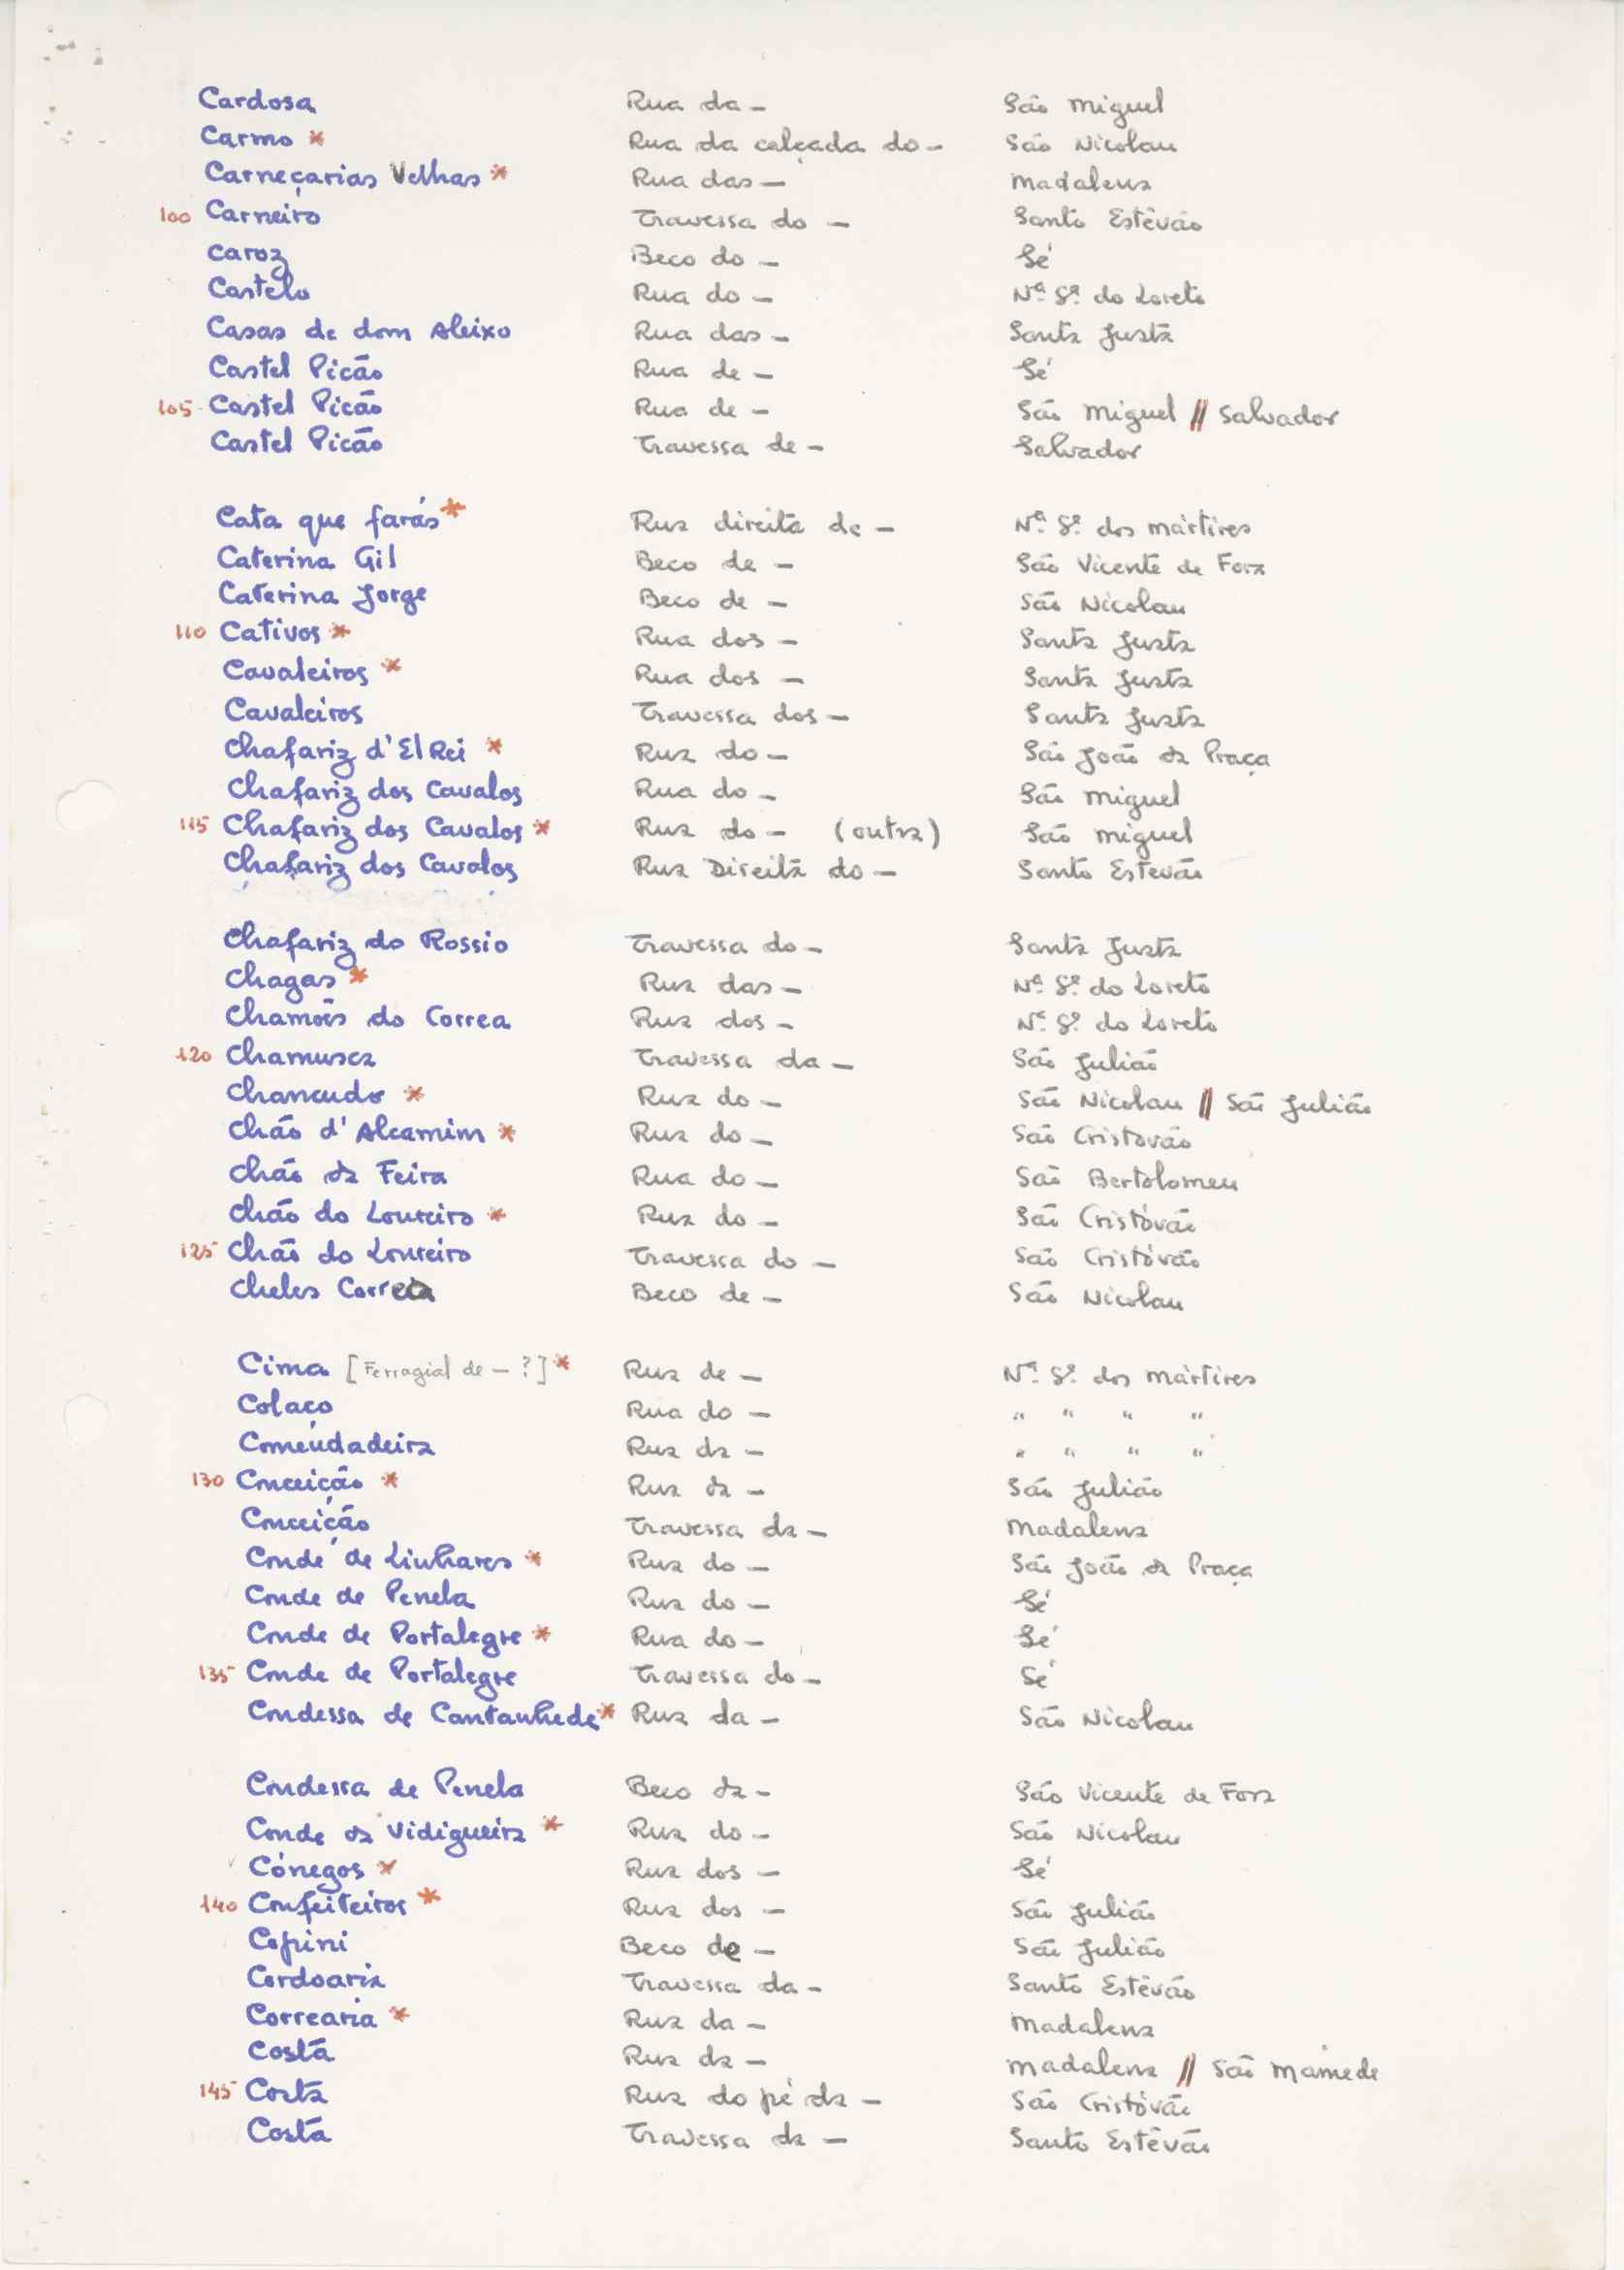 Cardosa Rua da – São Miguel
Carmo * Rua da calçada do – São Nicolau
Carneçarias Velhas * Rua das – Madalena
100 Carneiro Travessa do – Santo Estêvão
Caroz Beco do – Sé
Castelo Rua do – Nª Sª do Loreto
Casas de dom Aleixo Rua das – Santa Justa
Castel Picão Rua de – Sé
105 Castel Picão Rua de – São Miguel // Salvador
Castel Picão Travessa de – Salvador
Cata que farás * Rua direita de – Nª Sª dos Mártires
Caterina Gil Beco de – São Vicente de Fora
Caterina Jorge Beco de – São Nicolau
110 Cativos * Rua dos – Santa Justa
Cavaleiros * Rua dos – Santa Justa
Cavaleiros Travessa dos – Santa Justa
Chafariz d'El Rei * Rua do – São João da Praça
Chafariz dos Cavalos Rua do – São Miguel
115 Chafariz dos Cavalos * Rua do – (outra) São Miguel
Chafariz dos Cavalos Rua Direita do – Santo Estevão
Chafariz do Rossio Travessa do – Santa Justa
Chagas * Rua das – Nª Sª do Loreto
Chamões do Correa Rua dos – Nª Sª do Loreto
120 Chamusca Travessa da – São Julião
Chancudo * Rua do – São Nicolau // São Julião
Chão d'Alcamim * Rua do – São Cristovão
Chão da Feira Rua do – São Bertolomeu
Chão do Loureiro * Rua do – São Cristóvão
125 Chão do Loureiro Travessa do – São Cristóvão
Cheles Correia Beco de – São Nicolau
Cima [Ferragial de – ?] * Rua de – Nª Sª dos Mártires
Colaço Rua do – " " " "
Comendadeira Rua da – " " " "
130 Conceição * Rua da – São Julião
Conceição Travessa da – Madalena
Conde de Linhares * Rua do – São João da Praça
Conde de Penela Rua do – Sé
Conde de Portalegre * Rua do – Sé
135 Conde de Portalegre Travessa do – Sé
Condessa de Cantanhede * Rua da – São Nicolau
Condessa de Penela Beco da – São Vicente de Fora
Conde da Vidigueira * Rua do – São Nicolau
Cónegos * Rua dos – Sé
140 Confeiteiros * Rua dos – São Julião
Beco de – São Julião
Cordoaria Travessa da – Santo Estêvão
Correaria * Rua da – Madalena
Costa Rua da – Madalena // São Mamede
145 Costa Rua do pé da – São Cristóvão
Costa Travessa da – Santo Estêvão